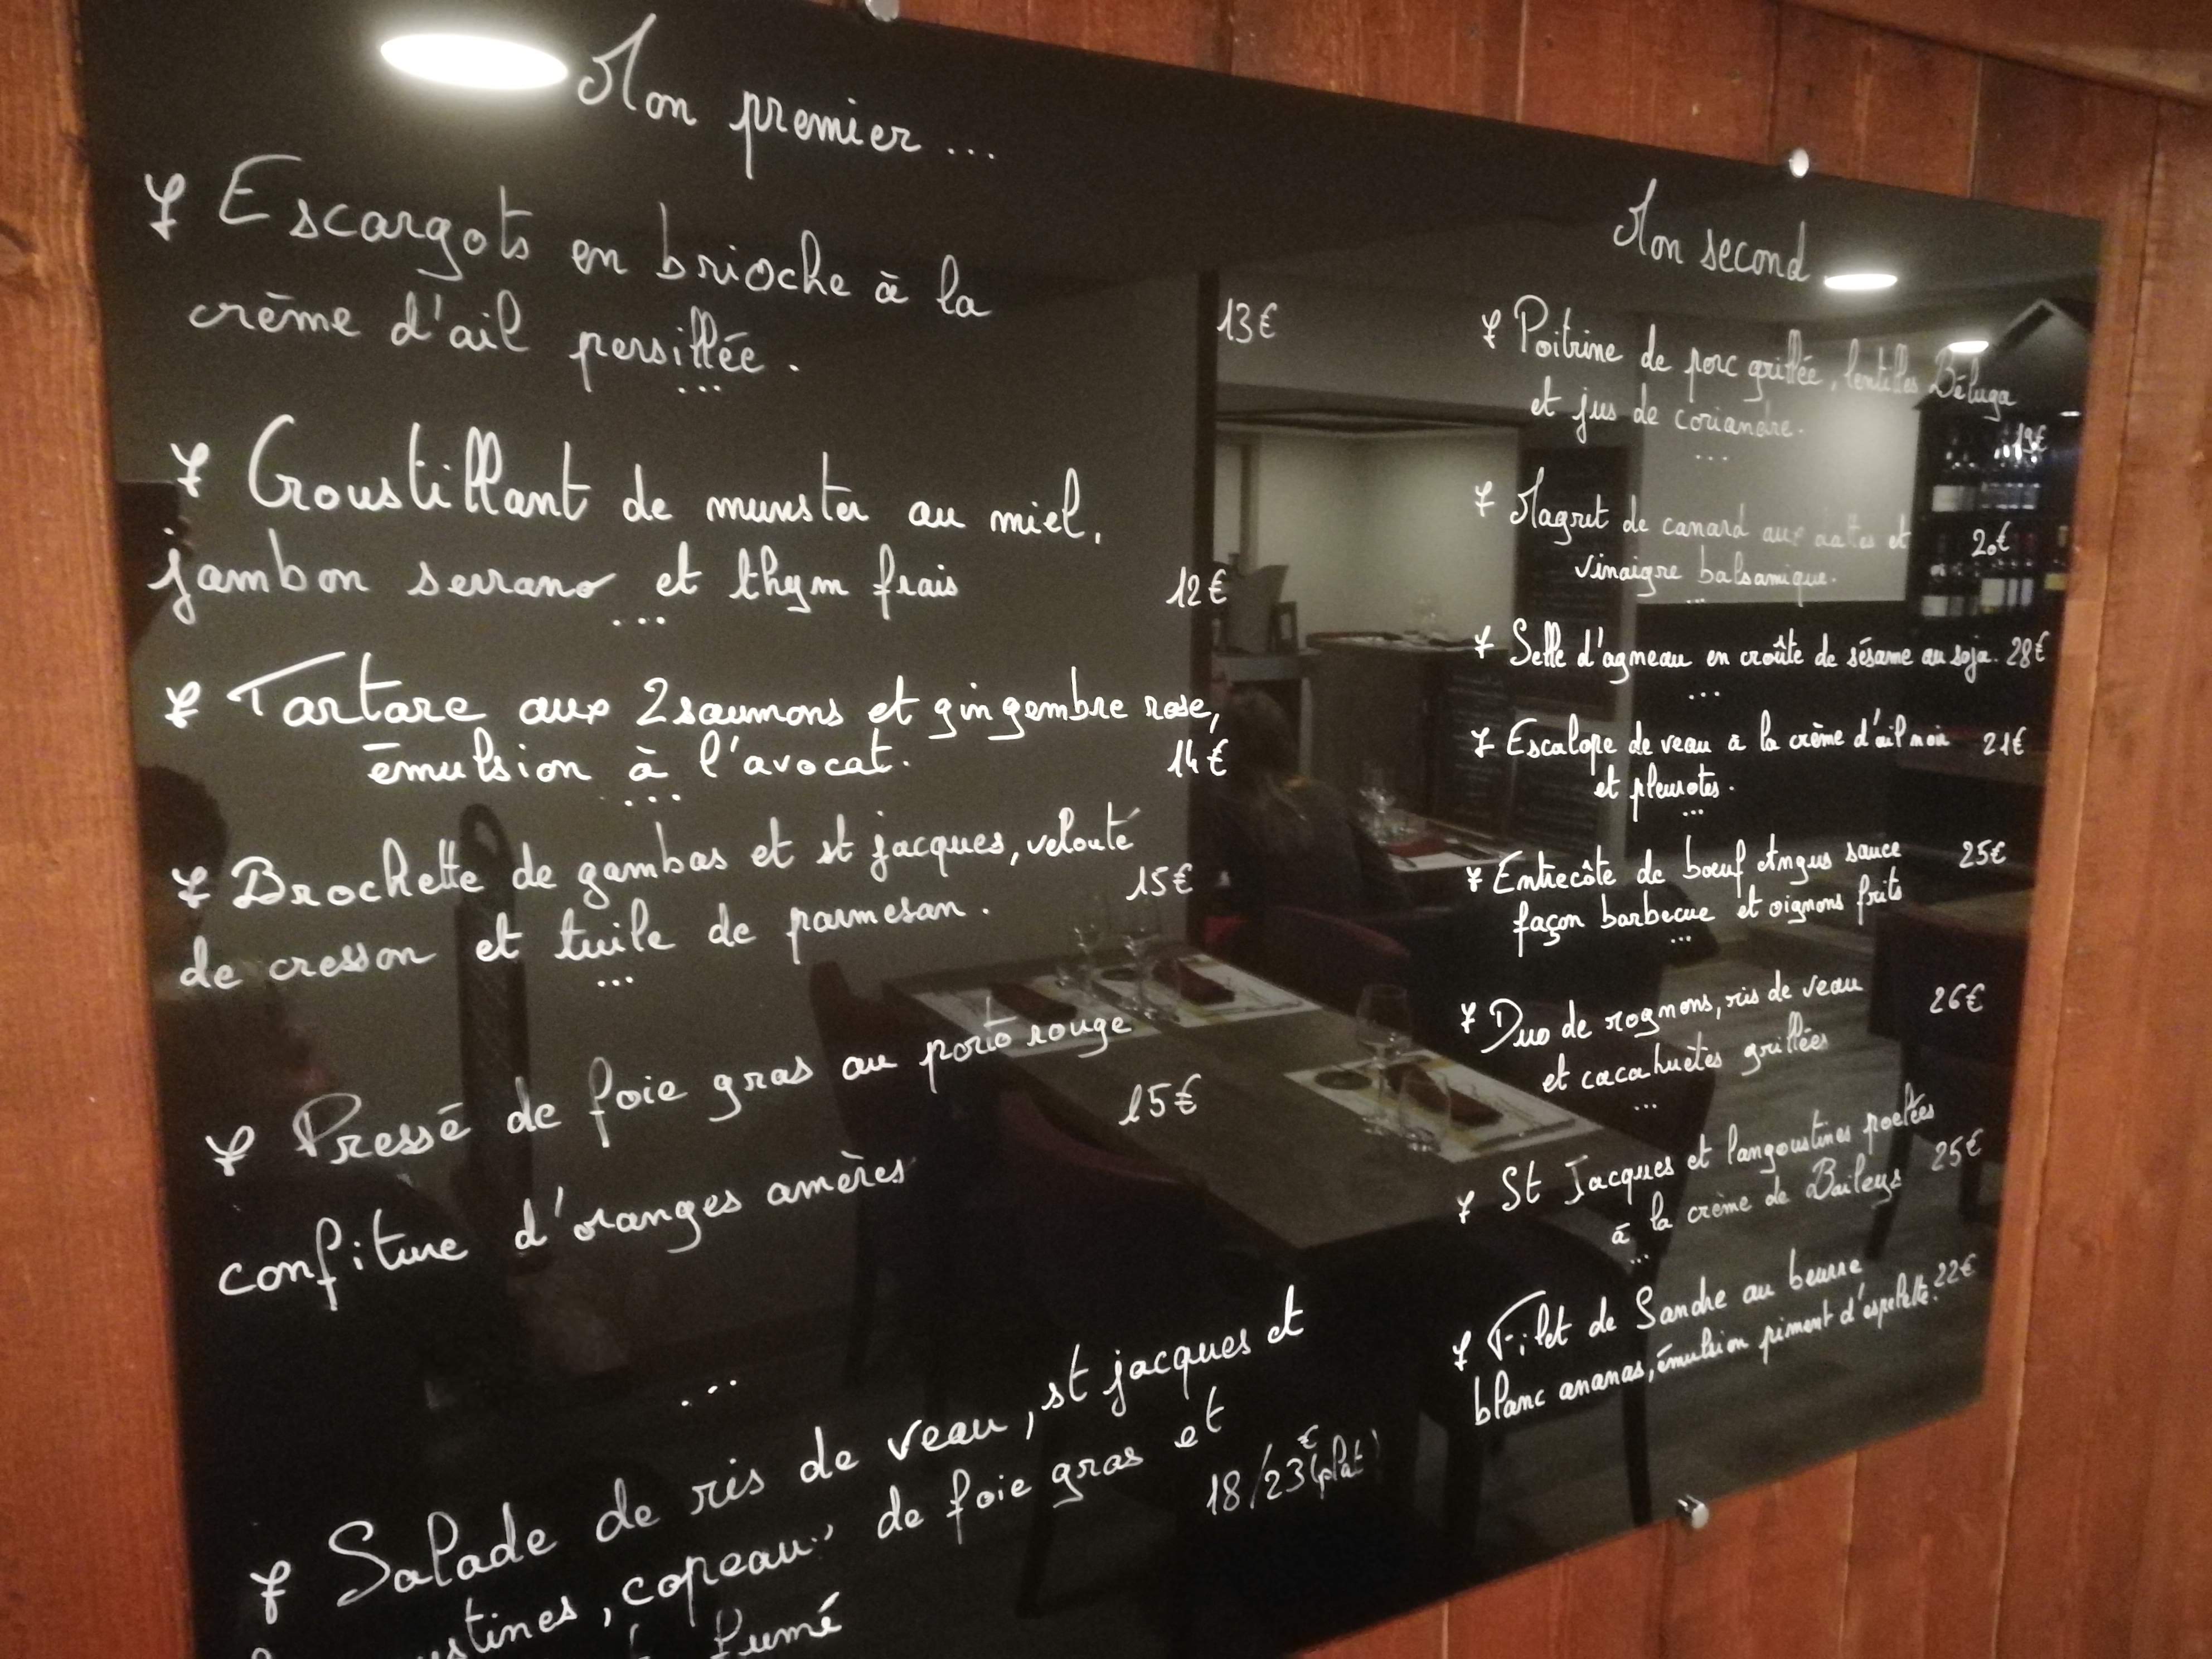 Mon premier ...
Escargots en brioche à la
crème d'ail persillée.
13€
...
Croustillant de munster au miel,
jambon serrano et thym frais
12€
...
Tartare aux 2 saumons et gingembre rose,
émulsion à l'avocat.
14€
...
Brochette de gambas et st jacques, velouté
de cresson et tuile de parmesan.
15€
...
Pressé de foie gras au porto rouge
confiture d'oranges amères
15€
...
Salade de ris de veau, st jacques et
copeaux de foie gras et
18/23€ (plat)
fumé
Mon second
Poitrine de porc grillée, lentilles Béluga
et jus de coriandre.
...
Magret de canard aux dattes et
vinaigre balsamique.
20€
...
Selle d'agneau en croûte de sésame au soja. 28€
...
Escalope de veau à la crème d'ail noir 21€
et pleurotes.
...
Entrecôte de boeuf Angus sauce 25€
façon barbecue et oignons frits
...
Duo de rognons, ris de veau 26€
et cacahuètes grillées
...
St Jacques et langoustines poelées
à la crème de Baileys 25€
...
Filet de Sandre au beurre
blanc ananas, émulsion piment d'espelette. 22€